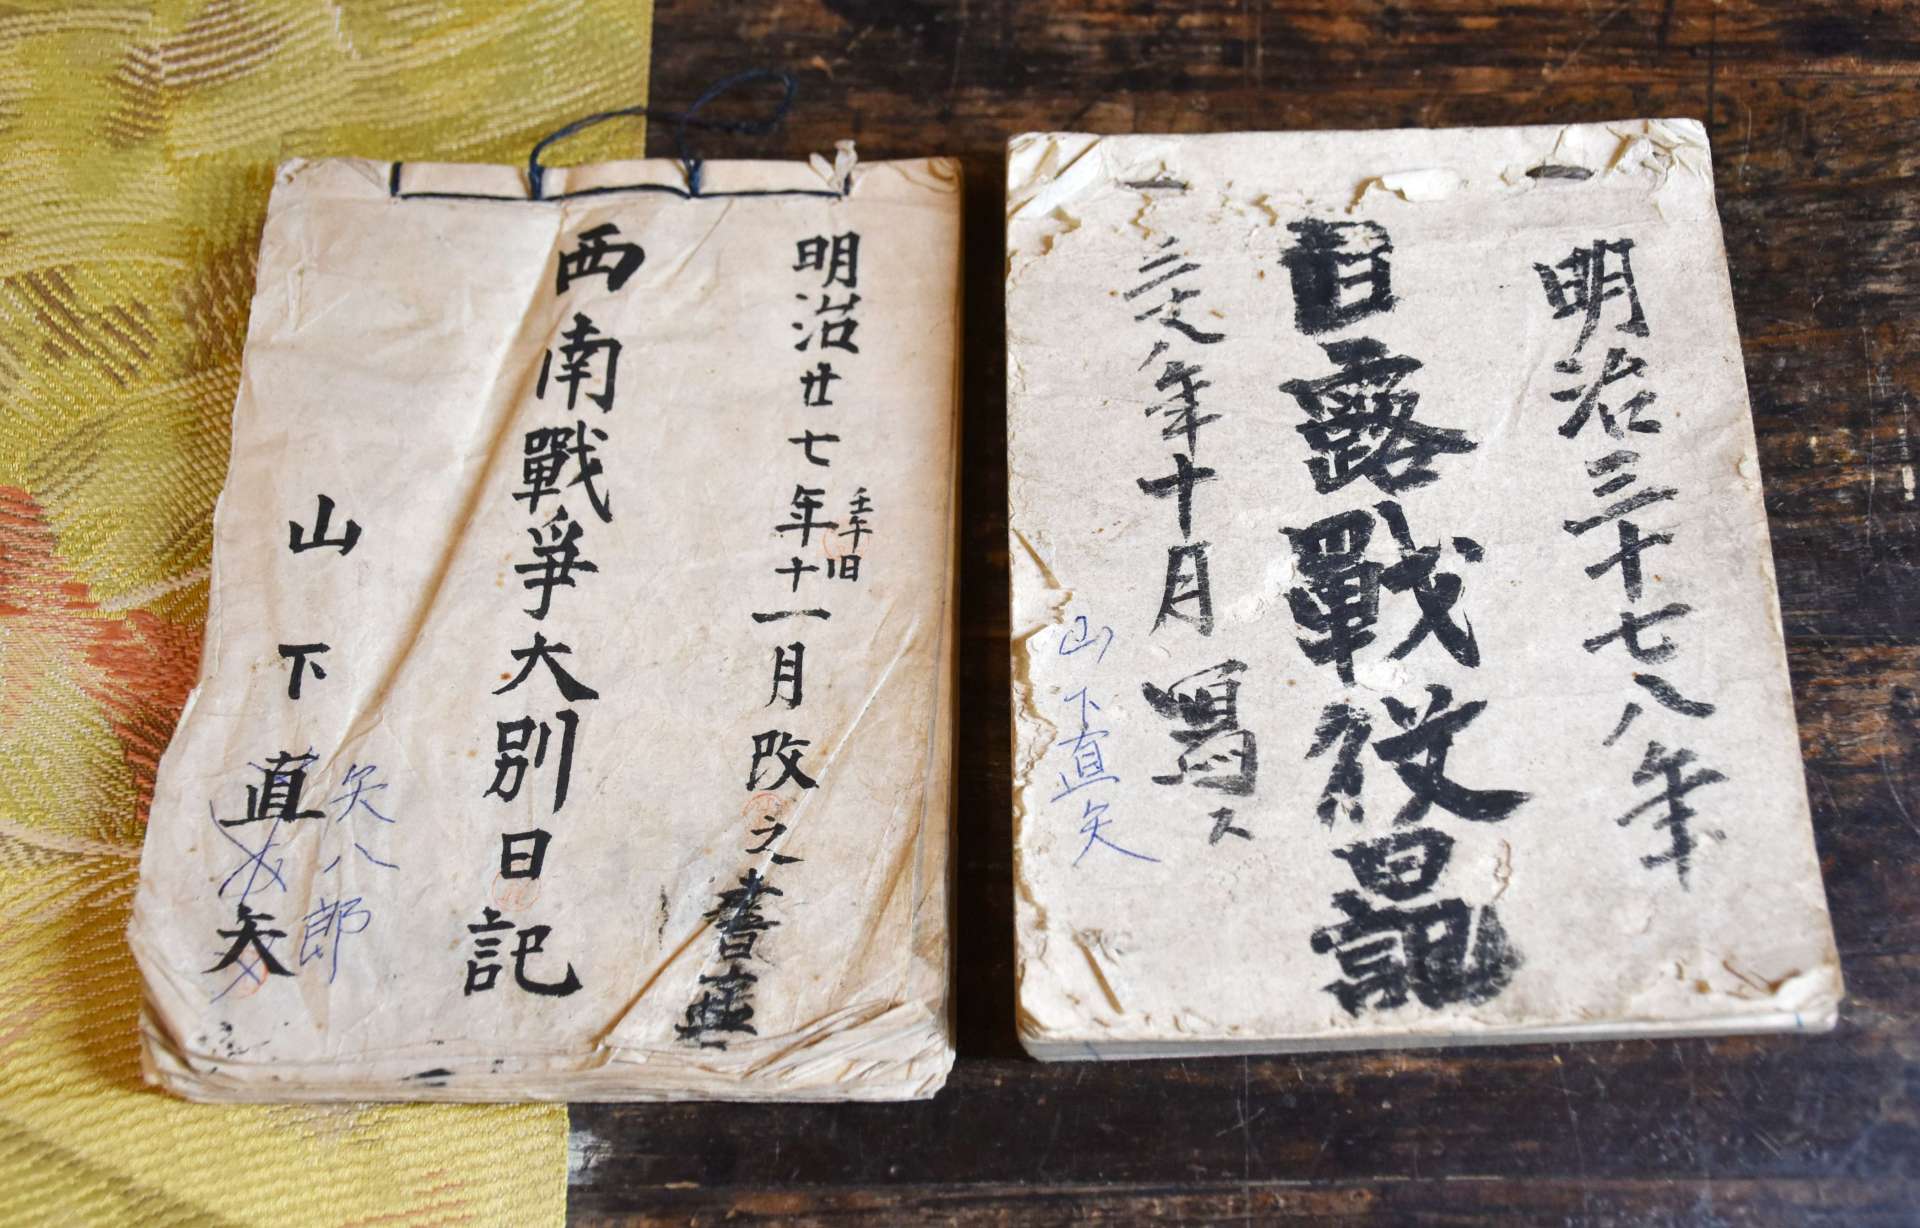 明治廿七年十一月改之書
壬午旧
西南戰爭大別日記
山下直矢
矢八郎
明治三十七八年
日露戰役日記
三七八年十月写ス
山下直矢